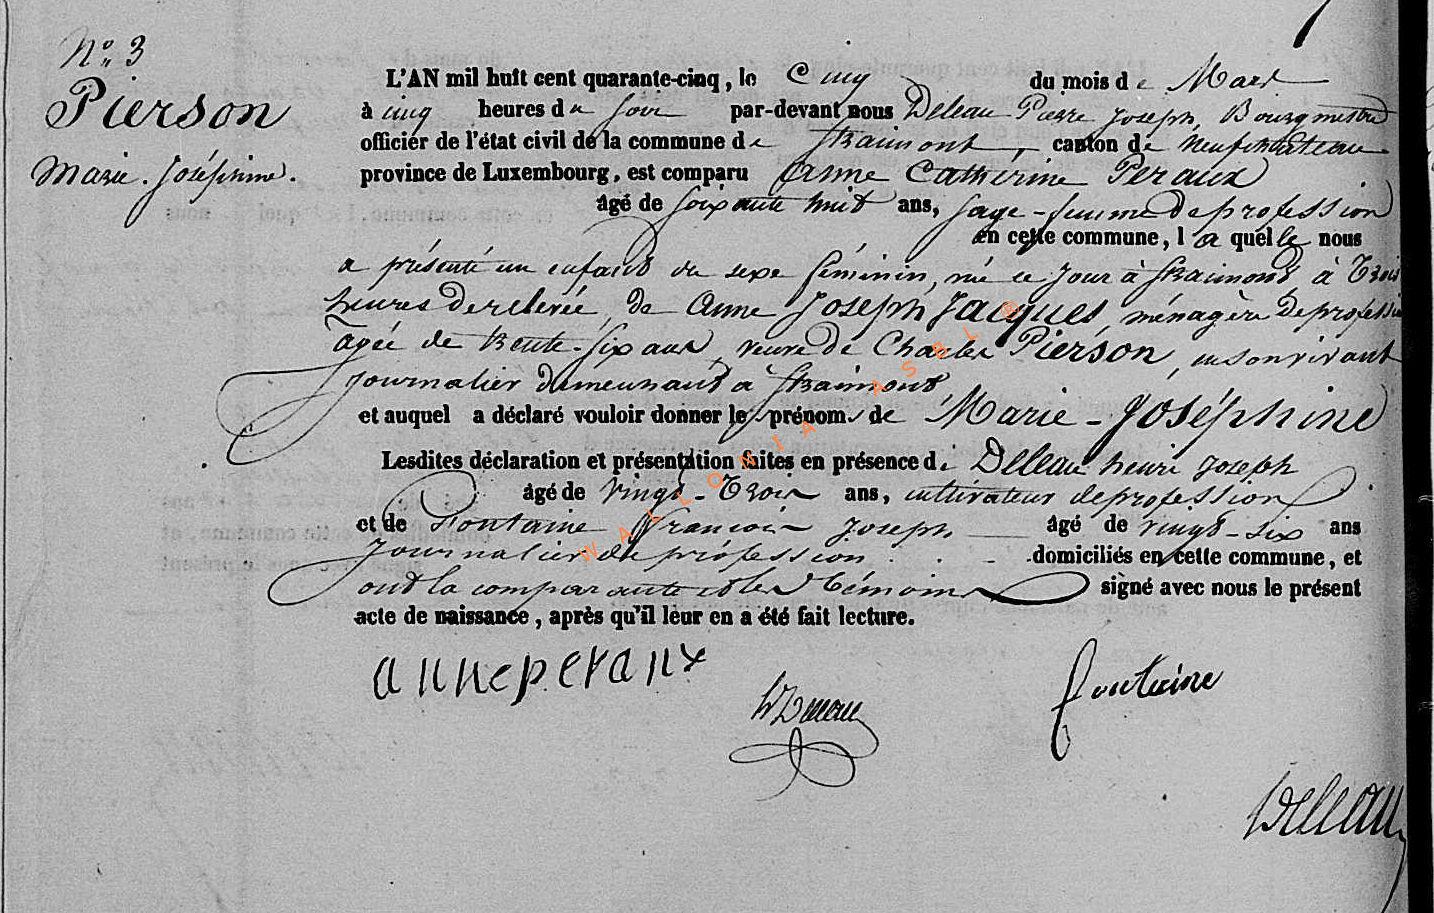 N° 3
Pierson
Marie-Joséphine.
L'AN mil huit cent quarante-cinq, le Cinq du mois de Mars
à cinq heures du soir par-devant nous Deleau Pierre Joseph, Bourgmestre
officier de l'état civil de la commune de Straimont, canton de neufchateau
province de Luxembourg, est comparu Anne Catherine Peraux
âgé de soixante huit ans, sage-femme de profession
en cette commune, laquelle nous
a présenté un enfant du sexe féminin, né ce jour à Straimont, à Trois
heures de relevée, de Anne Joseph Jacques, ménagère de profession
agée de trente-six ans, veuve de Charles Pierson, en son vivant
journalier demeurant à Straimont
et auquel a déclaré vouloir donner les prénoms de Marie-Joséphine
Lesdites déclaration et présentation faites en présence de Deleau henri joseph
âgé de vingt-Trois ans, cultivateur de profession
et de Fontaine François Joseph âgé de vingt-six ans
journalier de profession domiciliés en cette commune, et
ont la comparante et les témoins signé avec nous le présent
acte de naissance, après qu'il leur en a été fait lecture.
anneperaux
hDeleau
fontaine
Deleau
WALLONIA ASBL ©